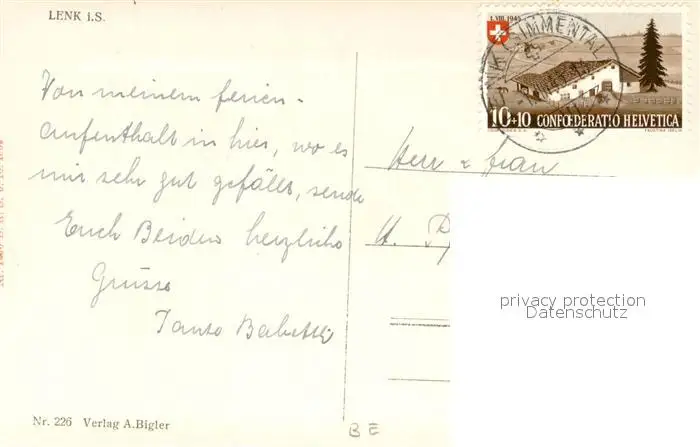 LENK i.S.
1. VIII. 1945
LENK (SIMMENTAL)
10+10 CONFOEDERATIO HELVETICA
Von meinem ferien-
aufenthalt in hier, wo es
mir sehr gut gefällt, sende
Euch Beiden herzliche
Grüsse
Tante Babette
Herr & Frau
privacy protection
Datenschutz
Nr. 226 Verlag A.Bigler
BE